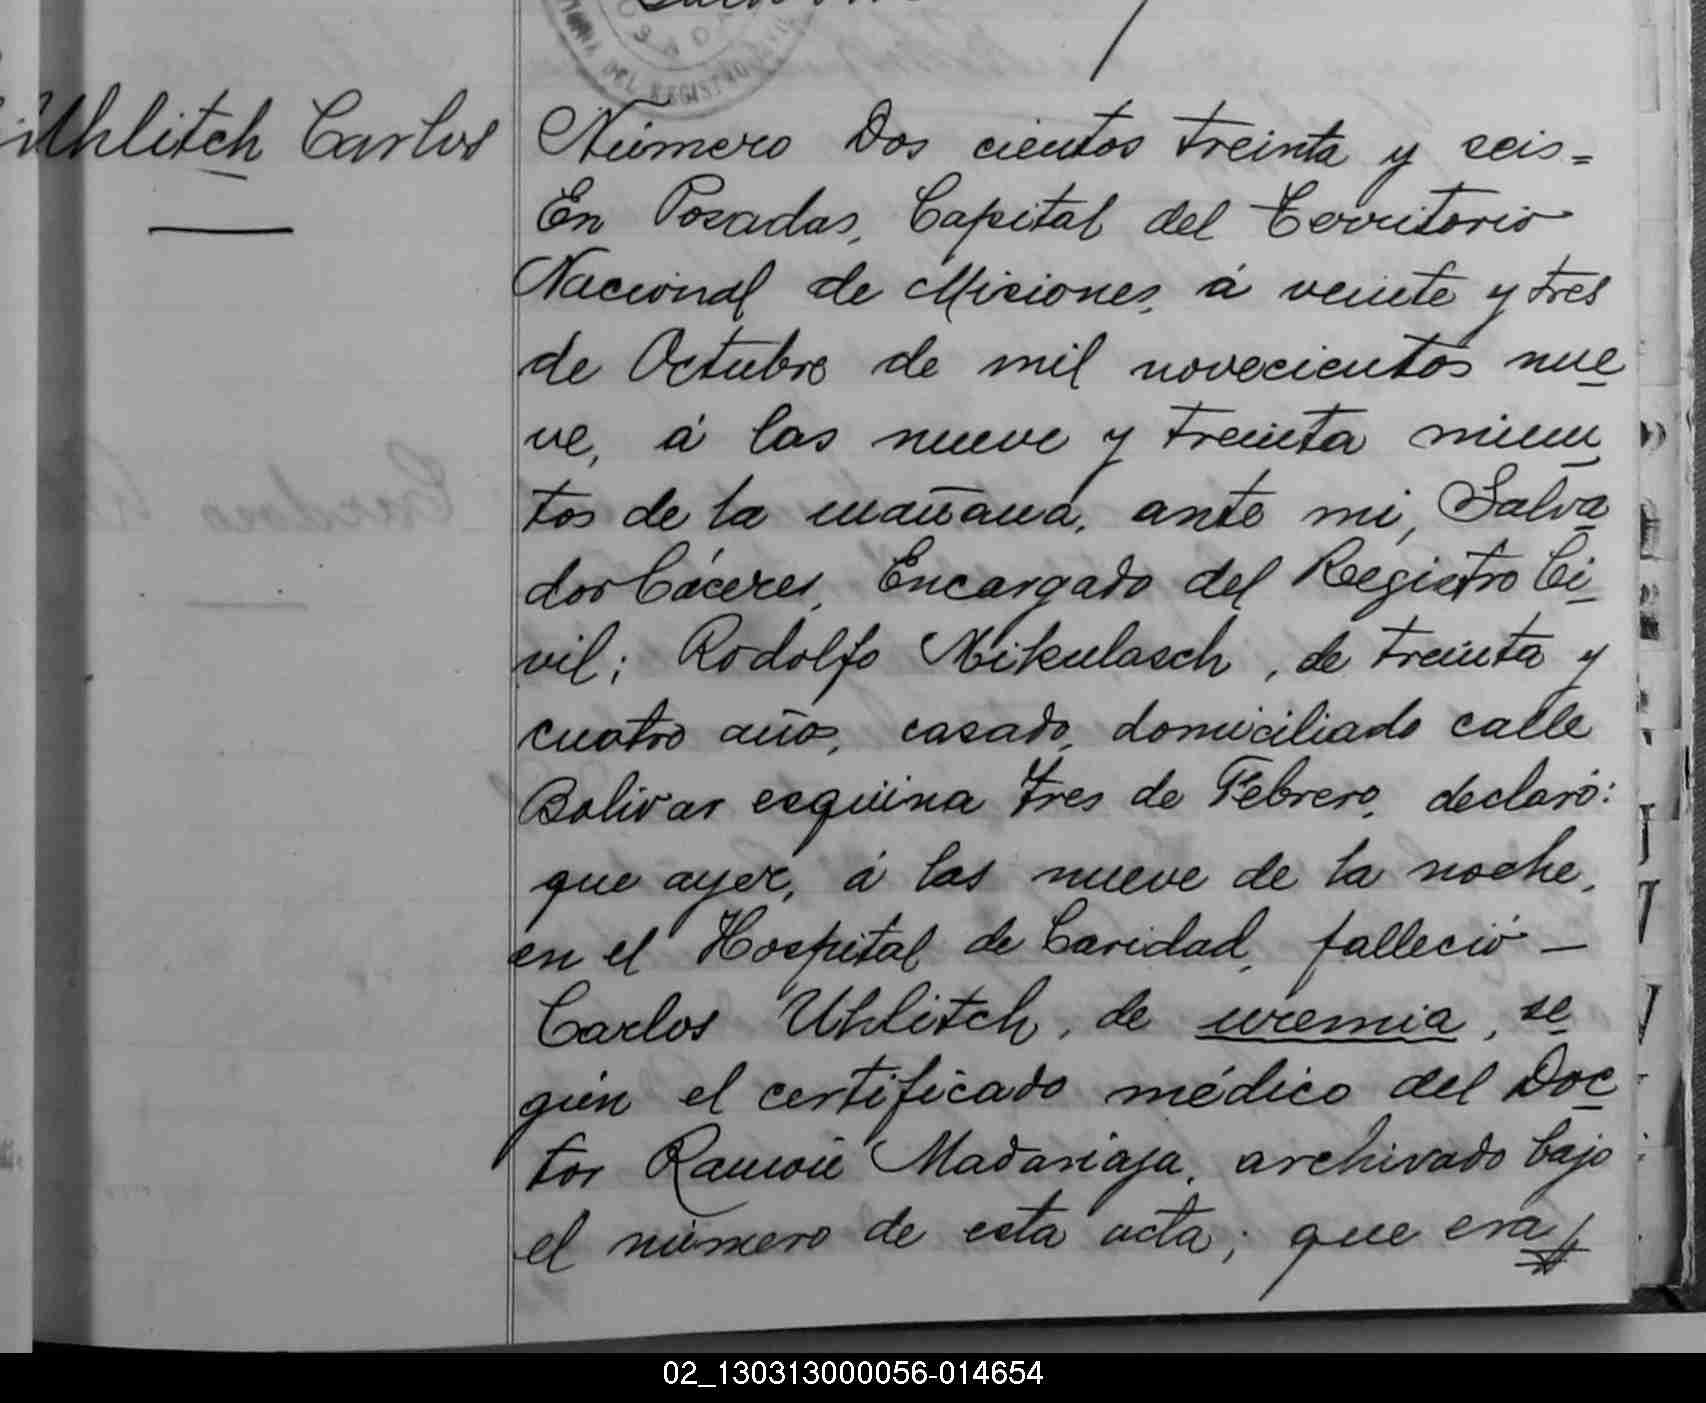 Uhlitch Carlos
DEL REGISTRO
Número Dos cientos treinta y seis=
En Posadas, Capital del Territorio
Nacional de Misiones, á veinte y tres
de Octubre de mil novecientos nue
ve, á las nueve y treinta minu
tos de la mañana, ante mi, Salva
dor Cáceres, Encargado del Registro Ci_
vil; Rodolfo Mikulasch, de treinta y
cuatro años, casado, domiciliado calle
Bolivar esquina Tres de Febrero, declaró:
que ayer, á las nueve de la noche,
en el Hospital de Caridad, falleció —
Carlos Uhlitch, de uremia, se
gún el certificado médico del Doc
tor Ramón Madariaga, archivado bajo
el número de esta acta; que era
02_130313000056-014654